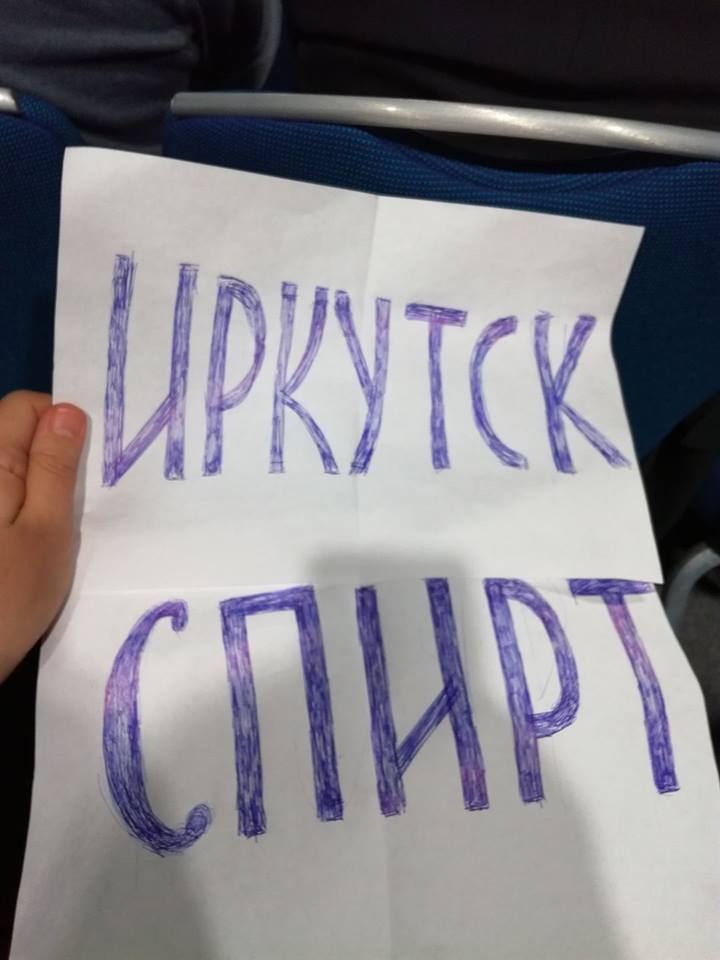 ИРКУТСК
СПИРТ